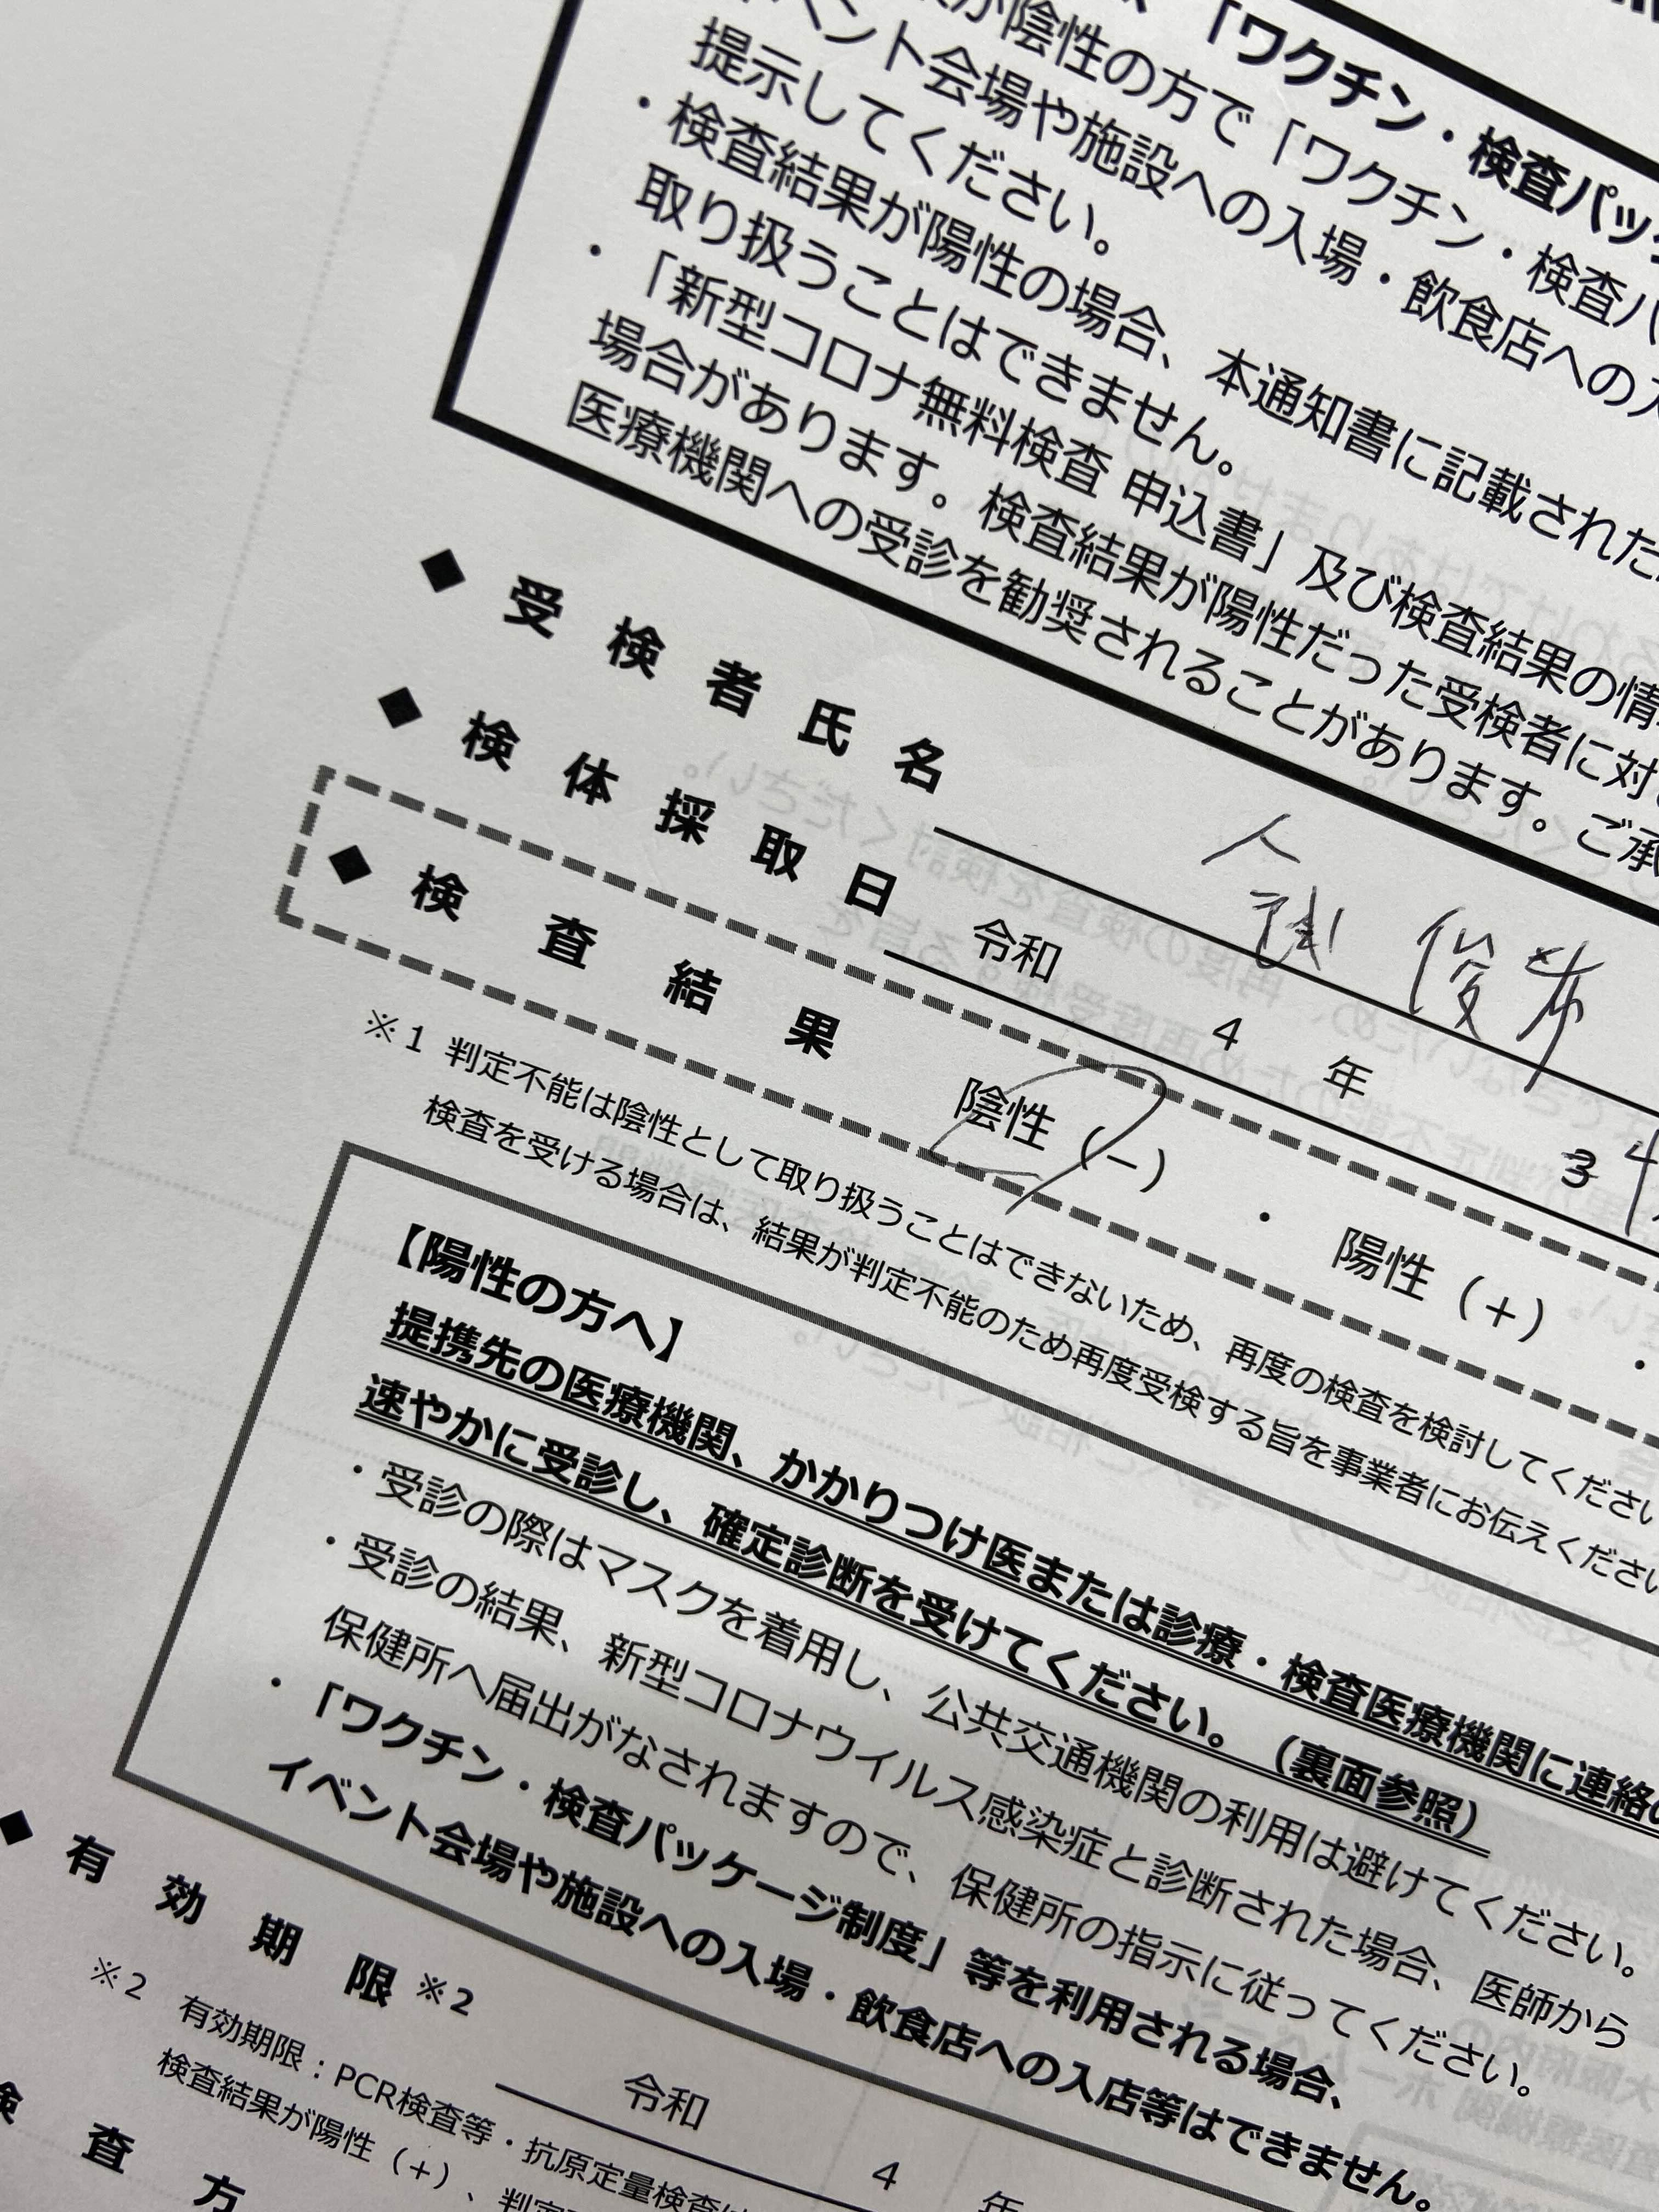 「ワクチン・検査パッ
が陰性の方で「ワクチン・検査パ
イベント会場や施設への入場・飲食店への入
提示してください。
・検査結果が陽性の場合、本通知書に記載された
取り扱うことはできません。
・「新型コロナ無料検査 申込書」及び検査結果の情
場合があります。検査結果が陽性だった受検者に対
医療機関への受診を勧奨されることがあります。ご承
◆ 受検者氏名
◆ 検体採取日 令和 4 年 3
◆ 検査結果 陰性（−）・陽性（+）・
※1 判定不能は陰性として取り扱うことはできないため、再度の検査を検討してください
検査を受ける場合は、結果が判定不能のため再度受検する旨を事業者にお伝えください
【陽性の方へ】
提携先の医療機関、かかりつけ医または診療・検査医療機関に連絡の
速やかに受診し、確定診断を受けてください。（裏面参照）
・受診の際はマスクを着用し、公共交通機関の利用は避けてください。
・受診の結果、新型コロナウイルス感染症と診断された場合、医師から
保健所へ届出がなされますので、保健所の指示に従ってください。
・「ワクチン・検査パッケージ制度」等を利用される場合、
イベント会場や施設への入場・飲食店への入店等はできません。
◆ 有効期限※2 令和 4 年
※2 有効期限：PCR検査等・抗原定量検査は
検査結果が陽性（+）、判定
検査方